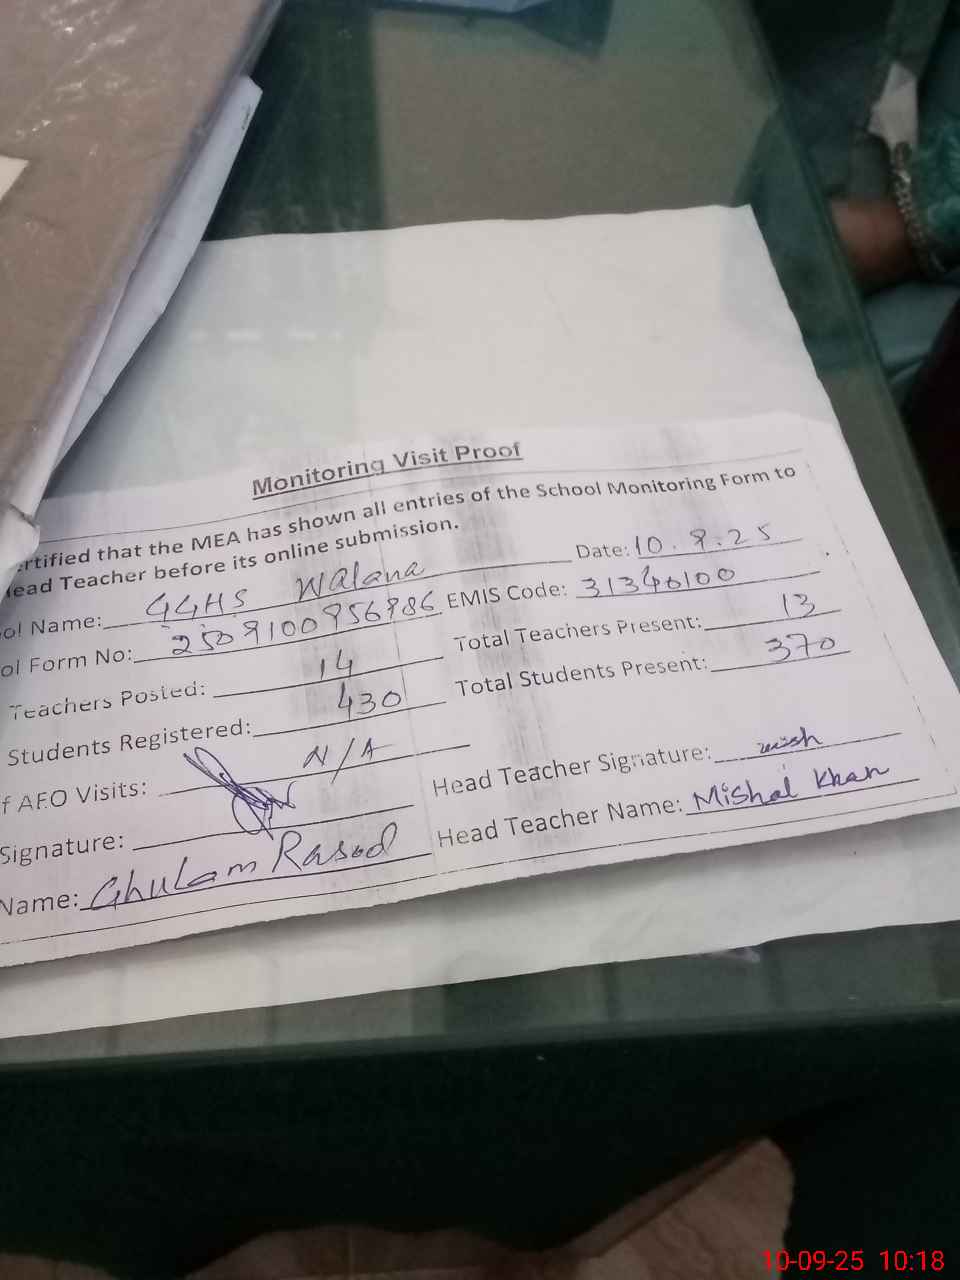 Monitoring Visit Proof
rtified that the MEA has shown all entries of the School Monitoring Form to
ead Teacher before its online submission.
Date: 10.9.25
ol Name: GGHS Walana
EMIS Code: 31340100
ol Form No: 2509100956986
Total Teachers Present: 13
Teachers Posted: 14
Total Students Present: 370
Students Registered: 430
f AEO Visits: N/A
Head Teacher Signature: mish
Signature:
Head Teacher Name: Mishal Khan
Name: Ghulam Rasool
10-09-25 10:18